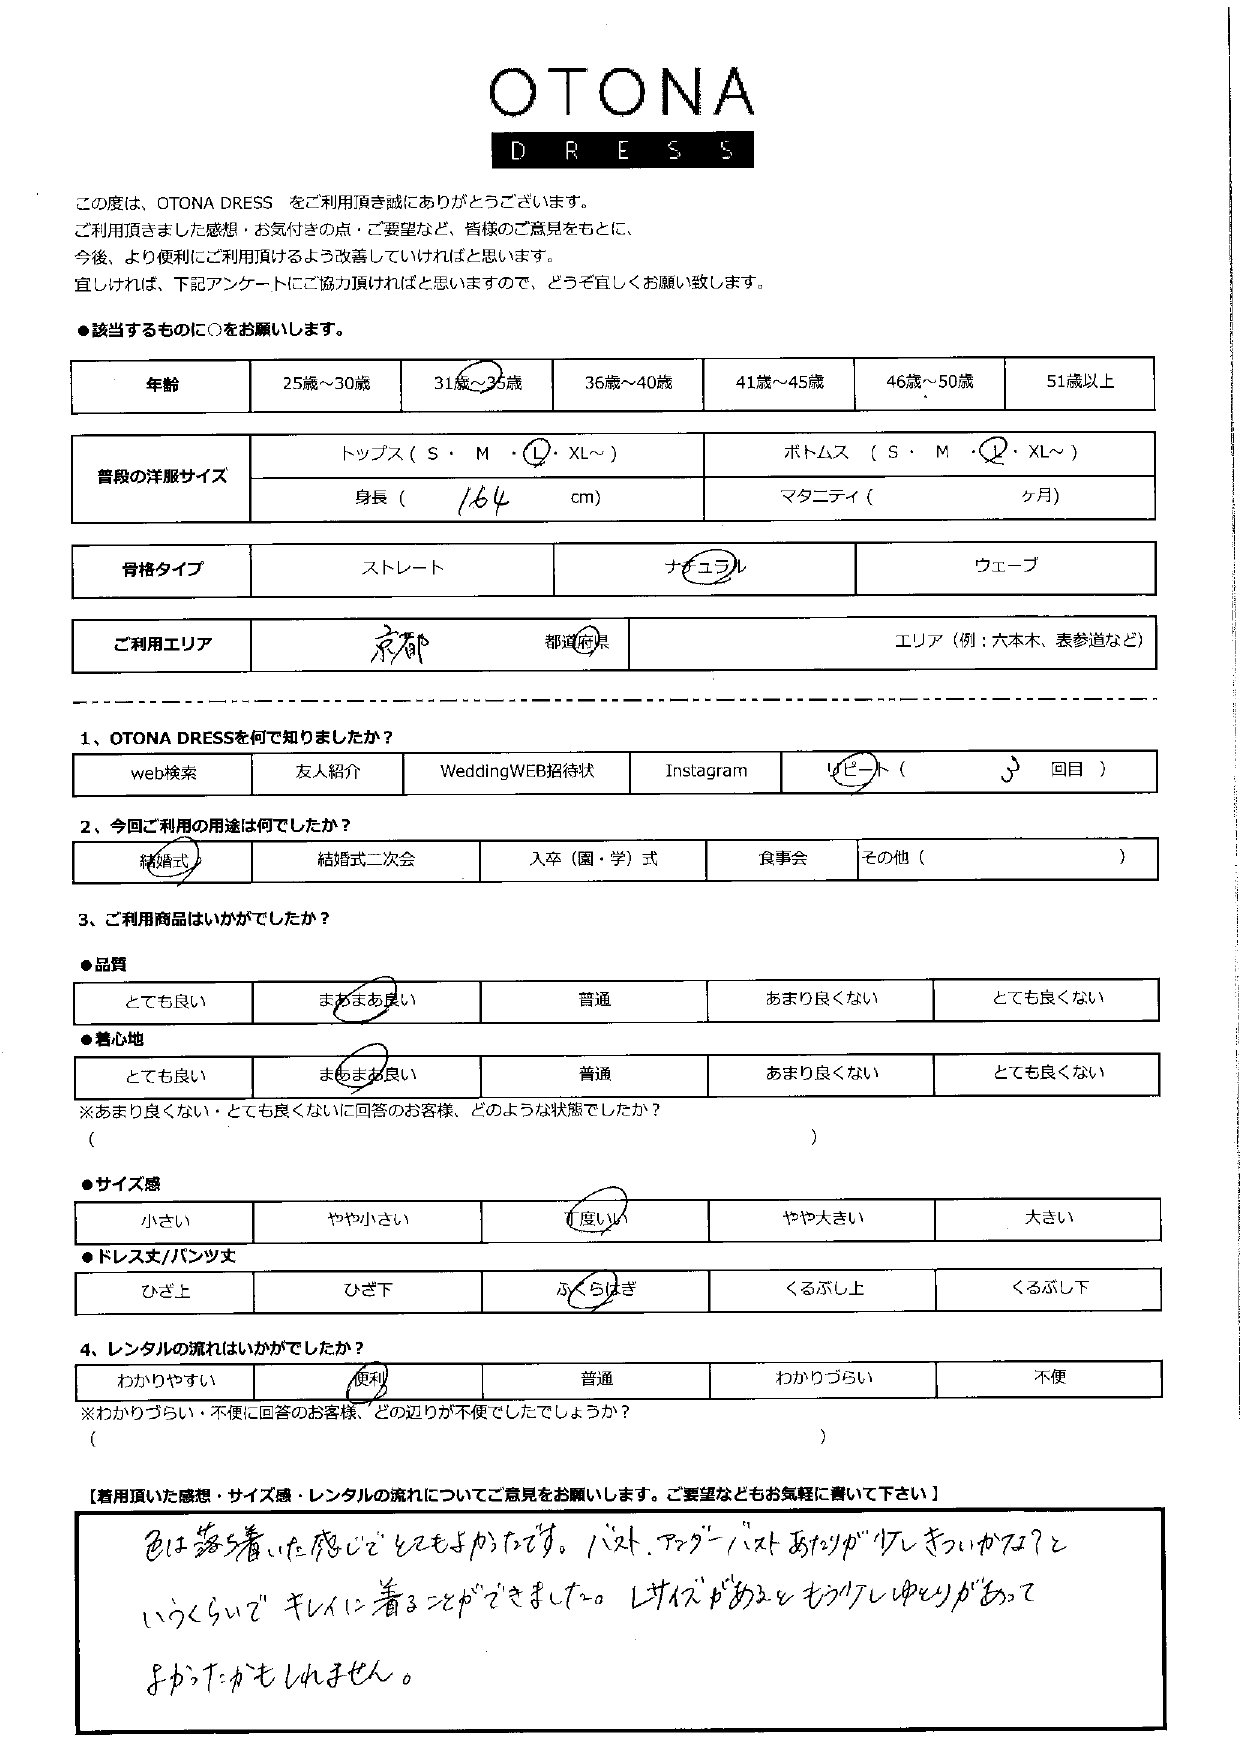 OTONA
DRESS
この度は、OTONA DRESS をご利用頂き誠にありがとうございます。
ご利用頂きました感想・お気付きの点・ご要望など、皆様のご意見をもとに、
今後、より便利にご利用頂けるよう改善していければと思います。
宜しければ、下記アンケートにご協力頂ければと思いますので、どうぞ宜しくお願い致します。
●該当するものに○をお願いします。
年齢 25歳～30歳 31歳～35歳 36歳～40歳 41歳～45歳 46歳～50歳 51歳以上
普段の洋服サイズ
トップス ( S ・ M ・ L ・ XL～ ) ボトムス ( S ・ M ・ L ・ XL～ )
身長 ( 164 cm) マタニティ ( ヶ月)
骨格タイプ ストレート ナチュラル ウェーブ
ご利用エリア 京都 都道府県 エリア（例：六本木、表参道など）
1、OTONA DRESSを何で知りましたか？
web検索 友人紹介 WeddingWEB招待状 Instagram リピート ( 3 回目 )
2、今回ご利用の用途は何でしたか？
結婚式 結婚式二次会 入卒（園・学）式 食事会 その他 ( )
3、ご利用商品はいかがでしたか？
●品質
とても良い まあまあ良い 普通 あまり良くない とても良くない
●着心地
とても良い まあまあ良い 普通 あまり良くない とても良くない
※あまり良くない・とても良くないに回答のお客様、どのような状態でしたか？
( )
●サイズ感
小さい やや小さい 丁度いい やや大きい 大きい
●ドレス丈/パンツ丈
ひざ上 ひざ下 ふくらはぎ くるぶし上 くるぶし下
4、レンタルの流れはいかがでしたか？
わかりやすい 便利 普通 わかりづらい 不便
※わかりづらい・不便に回答のお客様、どの辺りが不便でしたでしょうか？
( )
【着用頂いた感想・サイズ感・レンタルの流れについてご意見をお願いします。ご要望などもお気軽に書いて下さい】
色は落ち着いた感じでとてもよかったです。バスト、アンダーバストあたりが少しきついかな？と
いうくらいでキレイに着ることができました。Lサイズがあるともう少しゆとりがあって
よかったかもしれません。